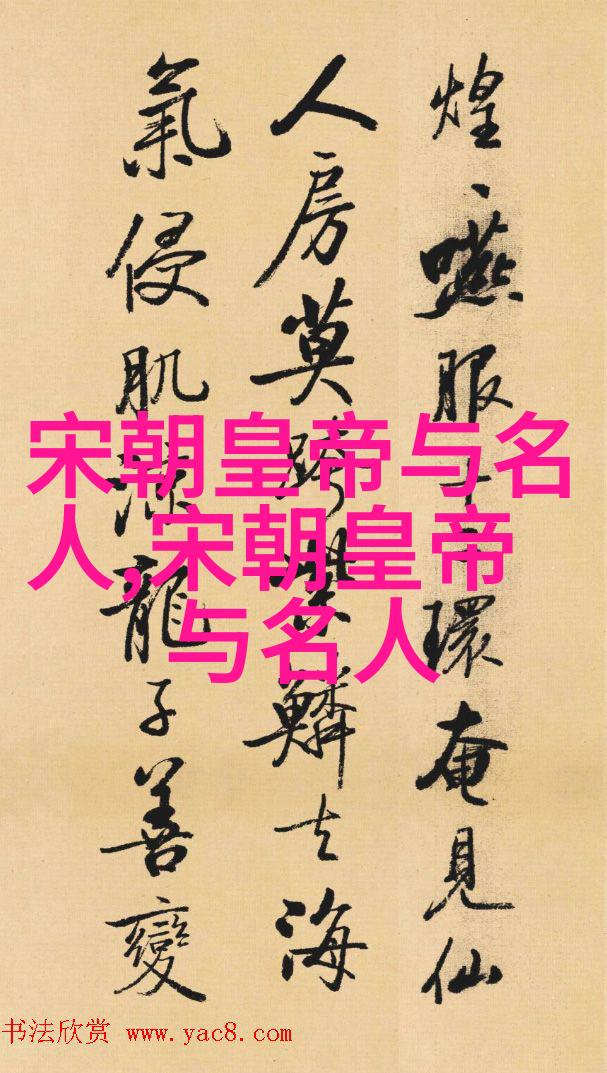 煌、服環奄見仙
人房莫跨紫鱗去海
氣侵肌凉龍子善變
宋朝皇帝与名
人,宋朝皇帝
与名人
书法欣赏 www.yac8.com